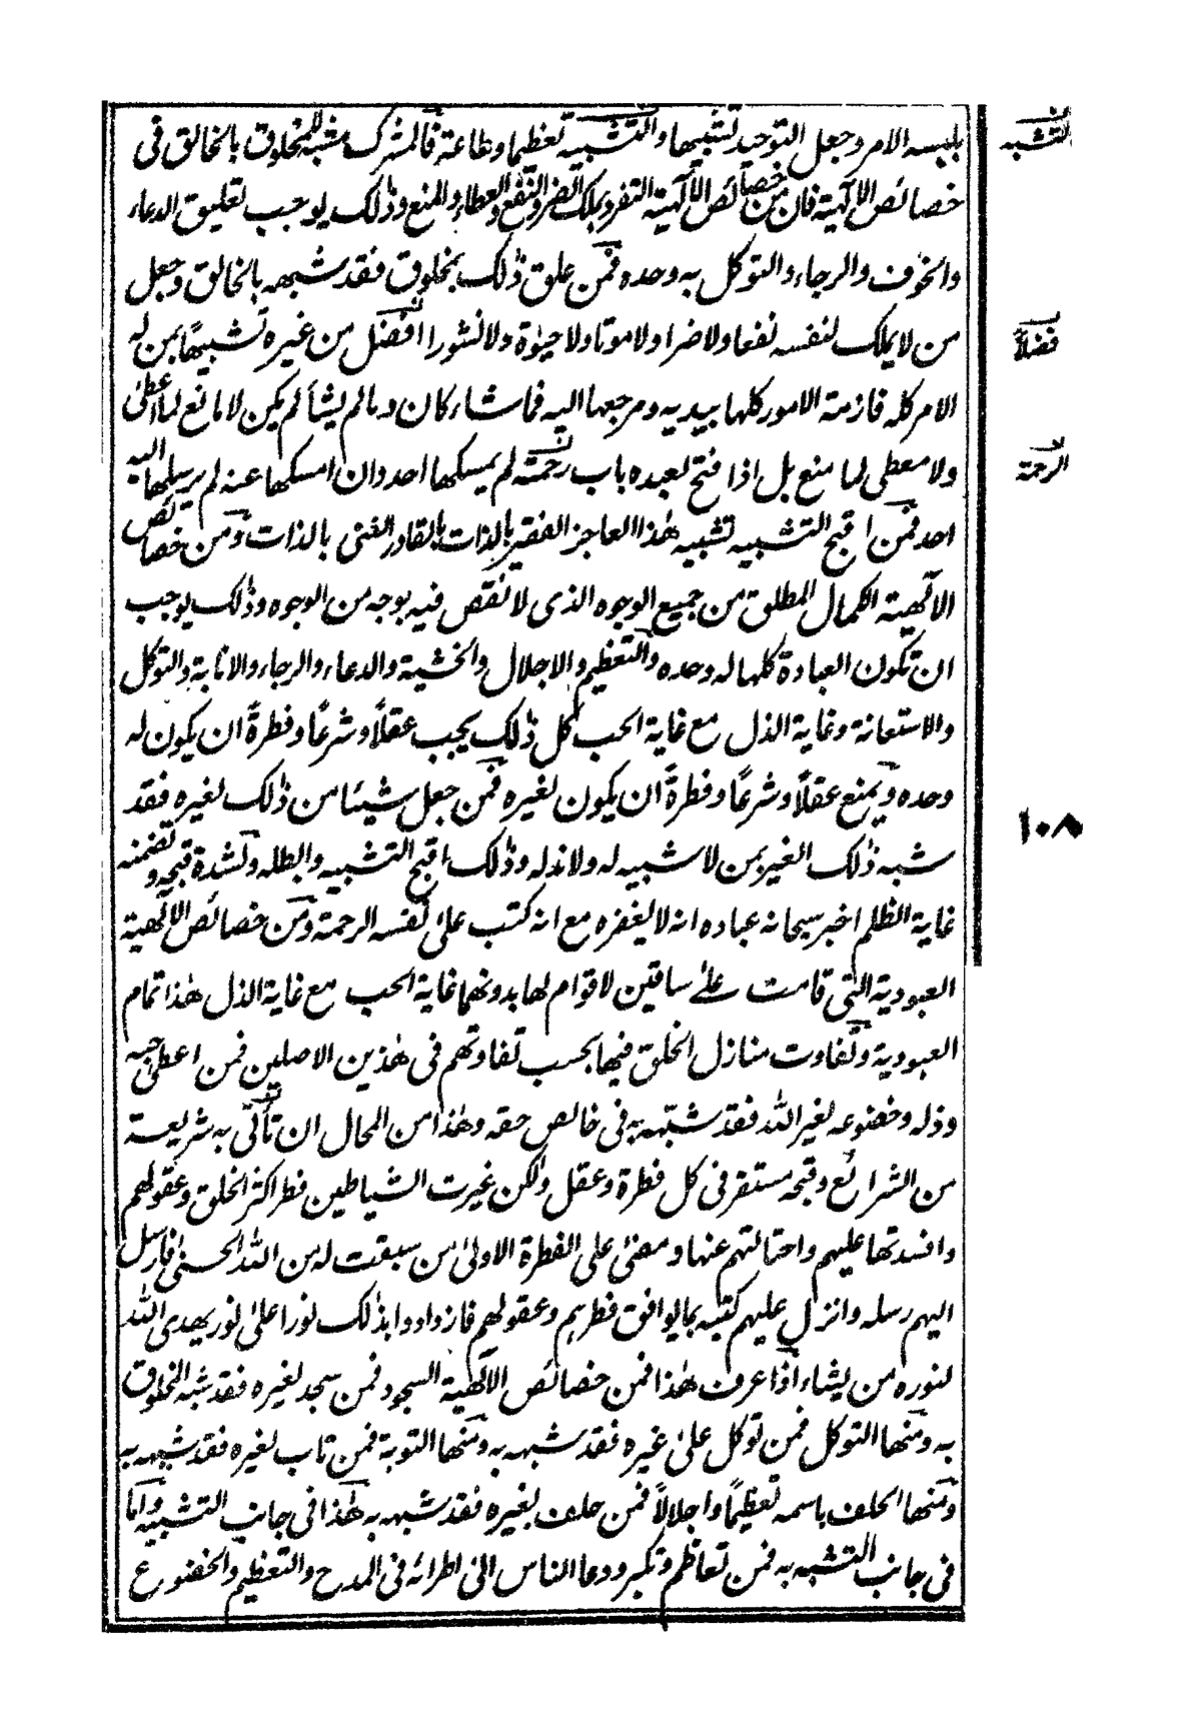 بلبسه الامر وجعل التوحيد تشبيها والتشبيه تعظيما وطاعة فالمشرك مشبه للمخلوق بالخالق فى
خصائص الالٰهية فان من خصائص الالٰهية التفرد بملك الضر والنفع والعطاء والمنع وذٰلك يوجب تعليق الدعاء
والخوف والرجاء والتوكل به وحده فمن علق ذٰلك بمخلوق فقد شبهه بالخالق وجعل
من لا يملك لنفسه نفعا ولا ضرا ولا موتا ولا حيٰوة ولا نشورا افضل من غيره تشبيهًا بمن له
الامر كله فازمة الامور كلها بيديه ومرجعها اليه فما شاء كان وما لم يشأ لم يكن لا مانع لما اعطىٰ
ولا معطى لما منع بل اذا فتح لعبده باب رحمته لم يمسكها احد وان امسكها عنه لم يرسلها اليه
احد فمن اقبح التشبيه تشبيه هٰذا العاجز الفقير بالذات بالقادر الغنى بالذات ومن خصائص
الالٰهية الكمال المطلق من جميع الوجوه الذى لا نقص فيه بوجه من الوجوه وذٰلك يوجب
ان تكون العبادة كلها له وحده والتعظيم والاجلال والخشية والدعاء والرجاء والانابة والتوكل
والاستعانة وغاية الذل مع غاية الحب كل ذٰلك يجب عقلاً وشرعًا وفطرةً ان يكون له
وحده ويمنع عقلاً وشرعًا وفطرةً ان يكون لغيره فمن جعل شيئا من ذٰلك لغيره فقد
شبه ذٰلك الغير بمن لا شبيه له ولا ند له وذٰلك اقبح التشبيه وابطله ولشدة قبحه وتضمنه
غاية الظلم اخبر سبحانه عباده انه لا يغفره مع انه كتب علىٰ نفسه الرحمة ومن خصائص الالٰهية
العبودية التى قامت علىٰ ساقين لا قوام لها بدونهما غاية الحب مع غاية الذل هٰذا تمام
العبودية وتفاوت منازل الخلق فيها بحسب تفاوتهم فى هٰذين الاصلين فمن اعطىٰ حبه
وذله وخضوعه لغير الله فقد شبّهه به فى خالص حقه وهٰذا من المحال ان تأتى به شريعة
من الشرائع وقبحه مستقر فى كل فطرة وعقل ولكن غيرت الشياطين فطر اكثر الخلق وعقولهم
وافسدتها عليهم واحتالتهم عنها ومضىٰ على الفطرة الاولىٰ من سبقت له من الله الحسنىٰ فارسل
اليهم رسله وانزل عليهم كتبه بما يوافق فطرهم وعقولهم فازدادوا بذٰلك نورا علىٰ نور يهدى الله
لنوره من يشاء اذا عرف هٰذا فمن خصائص الالٰهية السجود فمن سجد لغيره فقد شبه المخلوق
به ومنها التوكل فمن توكل علىٰ غيره فقد شبهه به ومنها التوبة فمن تاب لغيره فقد شبهه به
ومنها الحلف باسمه تعظيمًا واجلالاً فمن حلف بغيره فقد شبهه به هٰذا فى جانب التشبيه واما
فى جانب التشبه به فمن تعاظم وتكبر ودعا الناس الىٰ اطرائه فى المدح والتعظيم والخضوع
التشبه
فضلاً
الرحمة
١٠٨